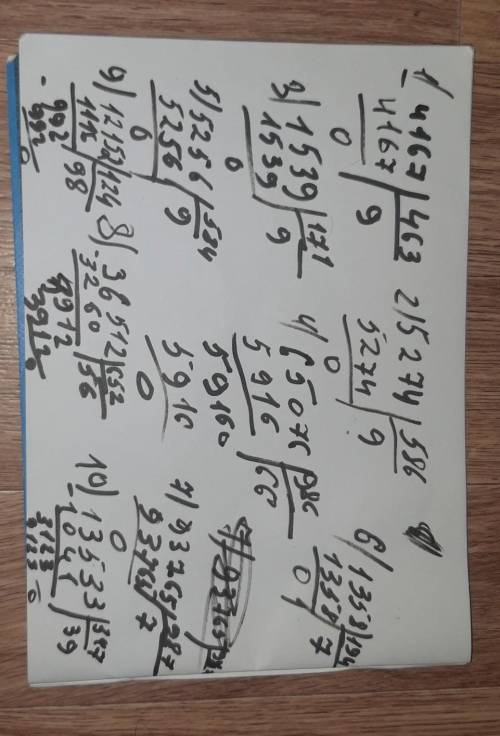 1) 4167 | 463
4167 | 9
0
2) 5274 | 586
5274 | 9
0
3) 1539 | 171
1539 | 9
0
4) 65076 | 986
5916 | 66
59160
5916
0
5) 5256 | 584
5256 | 9
0
6) 1358 | 194
1358 | 7
0
8) 36512 | 652
3260 | 56
3912
3912
0
9) 12152 | 124
1116 | 98
992
992
0
10) 13533 | 347
1041 | 39
3123
3123
0